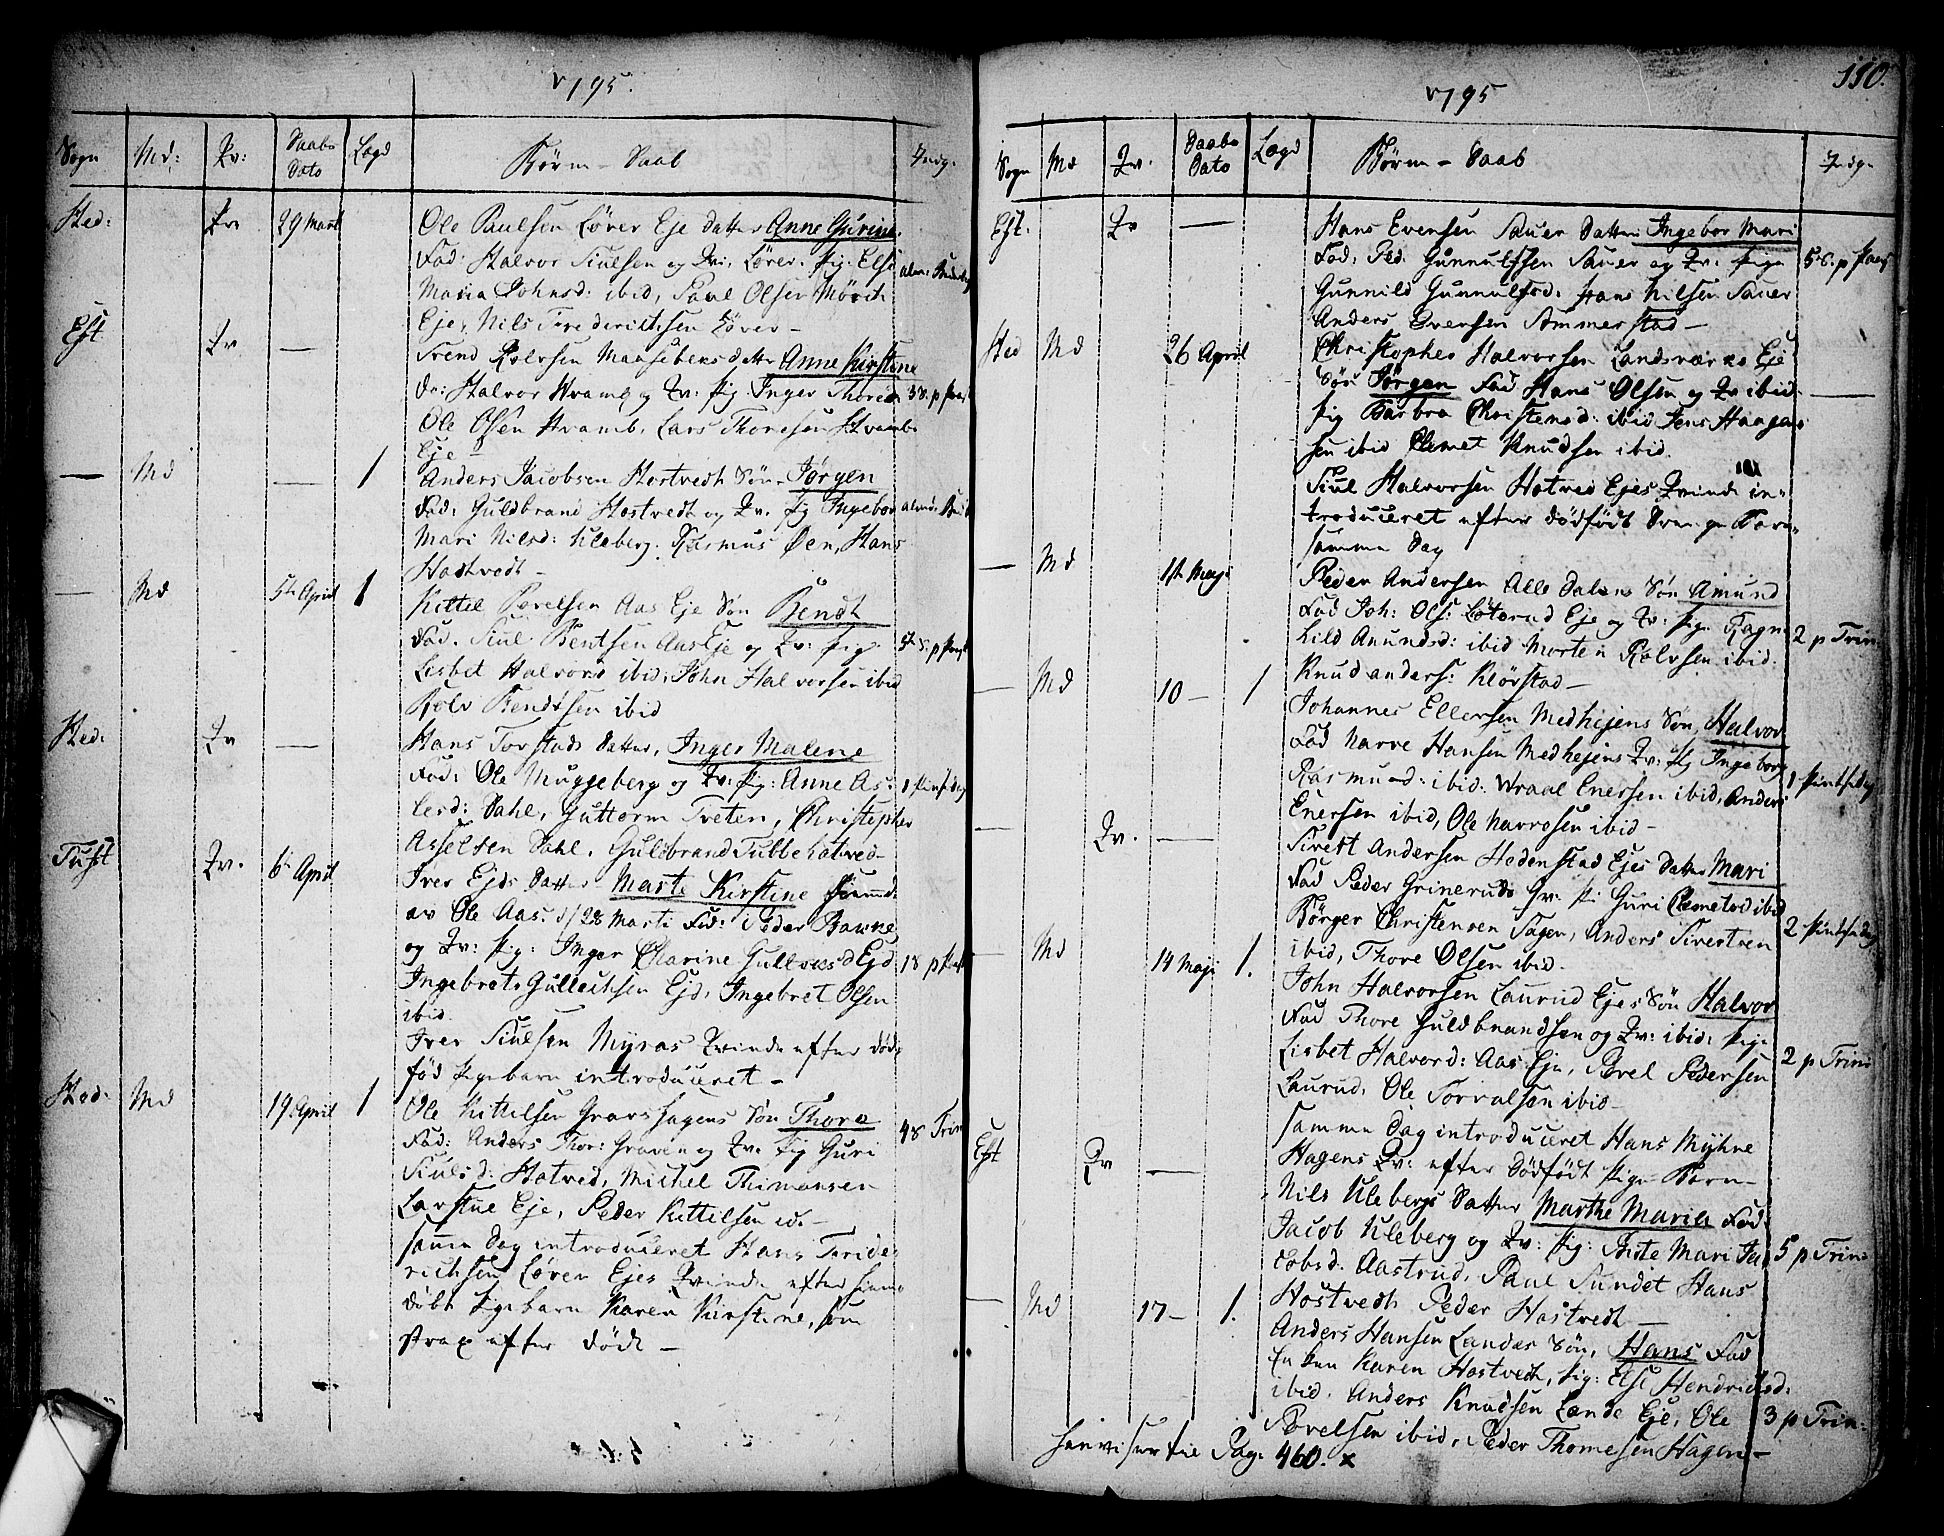 1795.
Sogn Md: Qv: Daabs Dato Lægd Børne-Daab Indg.
Hed: Qv 29 Marti Ole Paulsen Lører Eje Datter Anne Gurine.
Fad: Halvor Siulsen og Qv: Lører. pig. Else
Maria Johnsd: ibid, Paul Olsen
Eje, Nils Friderichsen Lører –
Eft Qv — Trend Rolvsen Maasebens datter Anne Kirstine
Halvor Kramb og Qv: pig Inger Thoresd
Ole Olsen Kramb, Lars Thoresen Kramb.
Eje –
— Md — 1 Anders Jacobsen Hostvedt Søn Jørgen
Fad: Guldbrand Hostvedt og Qv. pig Ingebor
Mari Nilsd: Uleberg. Rasmus Øen, Hans
Hostvedt –
— Md 5te April 1 Kittil Povelsen Aas Eje Søn Bendt
Fad. Siul Bentsen Aas Eje og Qv: pig
Lisbet Halvord ibid, John Halvorsen ibid
Rolv Bendtsen ibid
Hed: Qv — Hans Torstads Datter, Inger Malene
Fad: Ole Muggeberg og Qv: pig: Anne As-
lesd: Dahl, Guttorm Tveten, Christopher
Asselsen Dahl, Guldbrand
Tuft Qv. 6te April Iver Ejds Datter Marte Kirstine hiemd.
av Ole Aas. d/28 Marti Fad: Peder Bakke
og Qv: pig: Inger Charine Gullichsd Ejd 18 p
Ingebret Gullichsen Ejd, Ingebret Olsen
ibid.
Iver Siulsen Myras Qvinde efter død-
fød Pigebarn introduceret –
Hed: Md 19 April 1 Ole Kittilsen Gravs hagens Søn Thore
Fad: Anders Thor: Graven og Qv. pig Guri 48 Trin
Siulsd: Hatved, Michel Thimansen
Larstue Eje, Peder Kittilsen ib. –
samme Dag introduceret Hans Fride-
richsen Løren Ejes Qvinde efter hiem-
døbt Pigebarn Karen Kirstine, som
strax efter døde –
110.
1795
Sogn Md Qv. Daabs Dato Lægd Børne-Daab Indg.
Eft. Qv — Hans Evensen Sauer Datter Ingebor Mari
Fad, Ped. Gunnulfsen Sauer og Qv: pige
Gunnild Gunnulfsd: Hans Nilsen Sauer
Anders Evensen Ammerstad –
Hed Md 26 April Christopher Halvorsen Landsværks Eje
Søn Jørgen Fad Hans Olsen og Qv ibid —
pig Barbra Christensd: ibid Jens Haagen-
sen ibid Clemet Knudsen ibid.
Siul Halvorsen Hatved Ejes Qvinde in-
troduceret efter dødfødt Drenge Barn
samme Dag
— Md 1te Maji Peder Andersen Alle Dalens Søn Amund
Fad Joh: Ols: Løterud Eje og Qv: pig. Ragn-
hild Amundsd: ibid Morten Rolvsen ibid. 2 p Trin.
Knud anders: Klørstad –
— Md 10 – 1 Johannes Ellersen Medhejens Søn, Halvor
Fad Narve Hansen Medhejens Qv: pig Ingeborg
Rasmusd: ibid. Wraal Enersen ibid, Anders 1 Pintsedag
Enersen ibid, Ole Narvesen ibid –
— Qv. — Sivert Andersen Hedenstad Ejes Datter Mari
Fad Peder Grineruds Qv. pi Guri Clemetsd ibid
Børger Christensen Tagen, Anders Sivertsen 2 Pintsedag
ibid, Thore Olsen ibid.
— Md 14 Maji 1. John Halvorsen Laurud Ejes Søn Halvor
Fad Thore Guldbrandsen og Qv: ibid: pige
Lisbet Halvord: Aas Eje, Povel Pedersen 2 p Trin
Laurud, Ole Torvalsen ibid –
samme Dag introduceret Hans Myhne
Hagens Qv: efter Dødfødt Pige-Barn –
Eft Qv — Nils Ulebergs Datter Marthe Maria Fad.
Jacob Uleberg og Qv: pig: Birte Mari Ja- 5 p Trin:
cobsd: Aastrud, Paul Sundet Hans
Hostvedt Peder Hostvedt –
— Md 17 – 1. Anders Hansen Landes Søn, Hans Fad
Enken Karen Hostvedt, pig: Else Hendrichsd:
ibid. Anders Knudsen Lande Eje, Ole 3 p Trin:
Povelsen ibid, Peder Thomesen Hagen –
henviser til Pag: 460. x